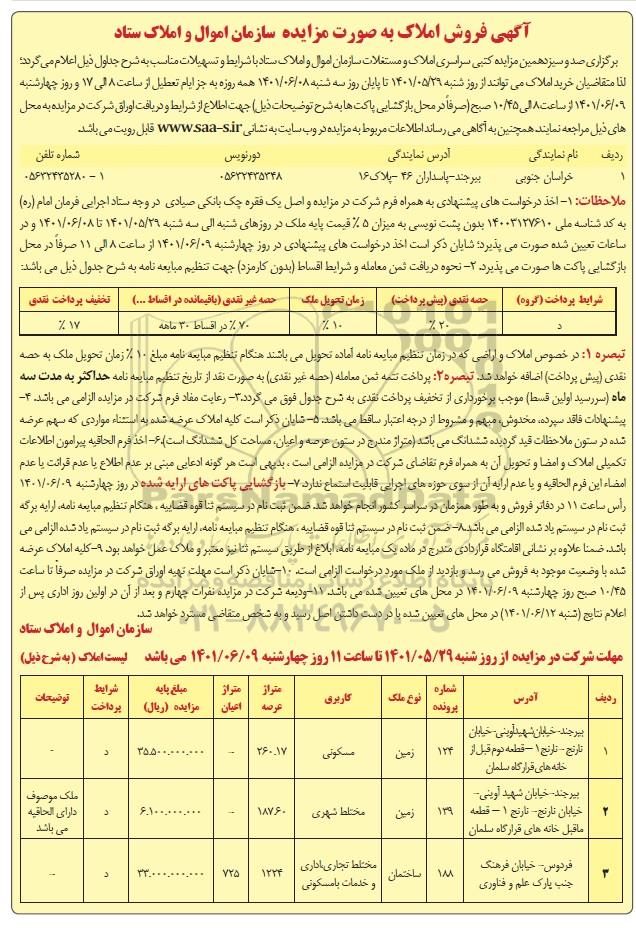 آگهی فروش املاک به صورت مزایده سازمان اموال و املاک ستاد
برگزاری صد و سیزدهمین مزایده کتبی سراسری املاک و مستغلات سازمان اموال و املاک ستاد با شرایط و تسهیلات مناسب به شرح جداول ذیل اعلام می‌گردد؛
لذا متقاضیان خرید املاک می توانند از روز شنبه ۱۴۰۱/۰۵/۲۹ تا پایان روز سه شنبه ۱۴۰۱/۰۶/۰۸ همه روزه به جز ایام تعطیل از ساعت ۸ الی ۱۷ و روز چهارشنبه
۱۴۰۱/۰۶/۰۹ از ساعت ۸ الی ۱۰/۴۵ صبح (صرفاً در محل بازگشایی پاکت ها به شرح توضیحات ذیل) جهت اطلاع از شرایط و دریافت اوراق شرکت در مزایده به محل
های ذیل مراجعه نمایند. همچنین به آگاهی می رساند اطلاعات مربوط به مزایده در وب سایت به نشانی www.saa-s.ir قابل رویت می باشد.
ردیف نام نمایندگی آدرس نمایندگی دورنویس شماره تلفن
۱ خراسان جنوبی بیرجند-پاسداران ۴۶ -پلاک ۱۶ ۰۵۶۳۲۴۳۵۳۴۸ ۱ - ۰۵۶۳۲۴۳۵۲۸۰
ملاحظات: ۱- اخذ درخواست های پیشنهادی به همراه فرم شرکت در مزایده و اصل یک فقره چک بانکی صیادی در وجه ستاد اجرایی فرمان امام (ره)
به کد شناسه ملی ۱۴۰۰۳۱۲۷۶۱۰ بدون پشت نویسی به میزان ۵ ٪ قیمت پایه ملک در روزهای شنبه الی سه شنبه ۱۴۰۱/۰۵/۲۹ تا ۱۴۰۱/۰۶/۰۸ و در
ساعات تعیین شده صورت می پذیرد؛ شایان ذکر است اخذ درخواست های پیشنهادی در روز چهارشنبه ۱۴۰۱/۰۶/۰۹ از ساعت ۸ الی ۱۱ صرفاً در محل
بازگشایی پاکت ها صورت می پذیرد. ۲- نحوه دریافت ثمن معامله و شرایط اقساط (بدون کارمزد) جهت تنظیم مبایعه نامه به شرح جدول ذیل می باشد:
شرایط پرداخت (گروه) حصه نقدی (پیش پرداخت) زمان تحویل ملک حصه غیر نقدی (باقیمانده در اقساط ...) تخفیف پرداخت نقدی
د ۲۰ ٪ ۱۰ ٪ ۷۰ ٪ در اقساط ۳۰ ماهه ۱۷ ٪
تبصره ۱: در خصوص املاک و اراضی که در زمان تنظیم مبایعه نامه آماده تحویل می باشند هنگام تنظیم مبایعه نامه مبلغ ۱۰ ٪ زمان تحویل ملک به حصه
نقدی (پیش پرداخت) اضافه خواهد شد. تبصره ۲: پرداخت تتمه ثمن معامله (حصه غیر نقدی) به صورت نقد از تاریخ تنظیم مبایعه نامه حداکثر به مدت سه
ماه (سررسید اولین قسط) موجب برخورداری از تخفیف پرداخت نقدی به شرح جدول فوق می گردد. ۳- رعایت مفاد فرم شرکت در مزایده الزامی می باشد. ۴-
پیشنهادات فاقد سپرده، مخدوش، مبهم و مشروط از درجه اعتبار ساقط می باشد. ۵- شایان ذکر است کلیه املاک عرضه شده به استثناء مواردی که سهم عرضه
شده در ستون ملاحظات قید گردیده ششدانگ می باشد (متراژ مندرج در ستون عرصه و اعیان، مساحت کل ششدانگ است). ۶- اخذ فرم الحاقیه پیرامون اطلاعات
تکمیلی املاک و امضا و تحویل آن به همراه فرم تقاضای شرکت در مزایده الزامی است ، بدیهی است هر گونه ادعایی مبنی بر عدم اطلاع یا عدم قرائت یا عدم
امضاء این فرم الحاقیه و یا عدم ارایه آن از سوی حوزه های اجرایی قابلیت استماع ندارد. ۷- بازگشایی پاکت های ارایه شده در روز چهارشنبه ۱۴۰۱/۰۶/۰۹
رأس ساعت ۱۱ در دفاتر فروش و به طور همزمان در سراسر کشور انجام خواهد شد. ضمن ثبت نام در سیستم ثنا قوه قضاییه ، هنگام تنظیم مبایعه نامه، ارایه برگه
ثبت نام در سیستم یاد شده الزامی می باشد. ۸- ضمن ثبت نام در سیستم ثنا قوه قضاییه ، هنگام تنظیم مبایعه نامه، ارایه برگه ثبت نام در سیستم یاد شده الزامی می
باشد. ضمنا علاوه بر نشانی اقامتگاه قراردادی مندرج در ماده یک مبایعه نامه، ابلاغ از طریق سیستم ثنا نیز معتبر و ملاک عمل خواهد بود. ۹-کلیه املاک عرضه
شده با وضعیت موجود به فروش می رسد و بازدید از ملک مورد درخواست الزامی است. ۱۰-شایان ذکر است مهلت تهیه اوراق شرکت در مزایده صرفاً تا ساعت
۱۰/۴۵ صبح روز چهارشنبه ۱۴۰۱/۰۶/۰۹ در محل های تعیین شده می باشد. ۱۱-ودیعه شرکت در مزایده نفرات چهارم و بعد از آن در اولین روز اداری پس از
اعلام نتایج (شنبه ۱۴۰۱/۰۶/۱۲) در محل های تعیین شده با در دست داشتن اصل رسید و به شخص متقاضی مسترد خواهد شد.
سازمان اموال و املاک ستاد
مهلت شرکت در مزایده از روز شنبه ۱۴۰۱/۰۵/۲۹ تا ساعت ۱۱ روز چهارشنبه ۱۴۰۱/۰۶/۰۹ می باشد لیست املاک (به شرح ذیل)
ردیف آدرس شماره پرونده نوع ملک کاربری متراژ عرصه متراژ اعیان مبلغ پایه مزایده (ریال) شرایط پرداخت توضیحات
۱ بیرجند-خیابان شهید آوینی-خیابان نارنج-نارنج ۱ -قطعه دوم قبل از خانه های قرارگاه سلمان ۱۲۴ زمین مسکونی ۲۶۰.۱۷ -- ۳۵.۵۰۰.۰۰۰.۰۰۰ د -
۲ بیرجند-خیابان شهید آوینی- خیابان نارنج- نارنج ۱ - قطعه ماقبل خانه های قرارگاه سلمان ۱۳۹ زمین مختلط شهری ۱۸۷.۶۰ -- ۶.۱۰۰.۰۰۰.۰۰۰ د ملک موصوف دارای الحاقیه می باشد
۳ فردوس- خیابان فرهنگ جنب پارک علم و فناوری ۱۸۸ ساختمان مختلط تجاری،اداری و خدمات بامسکونی ۱۲۳۴ ۷۲۵ ۳۳.۰۰۰.۰۰۰.۰۰۰ د --